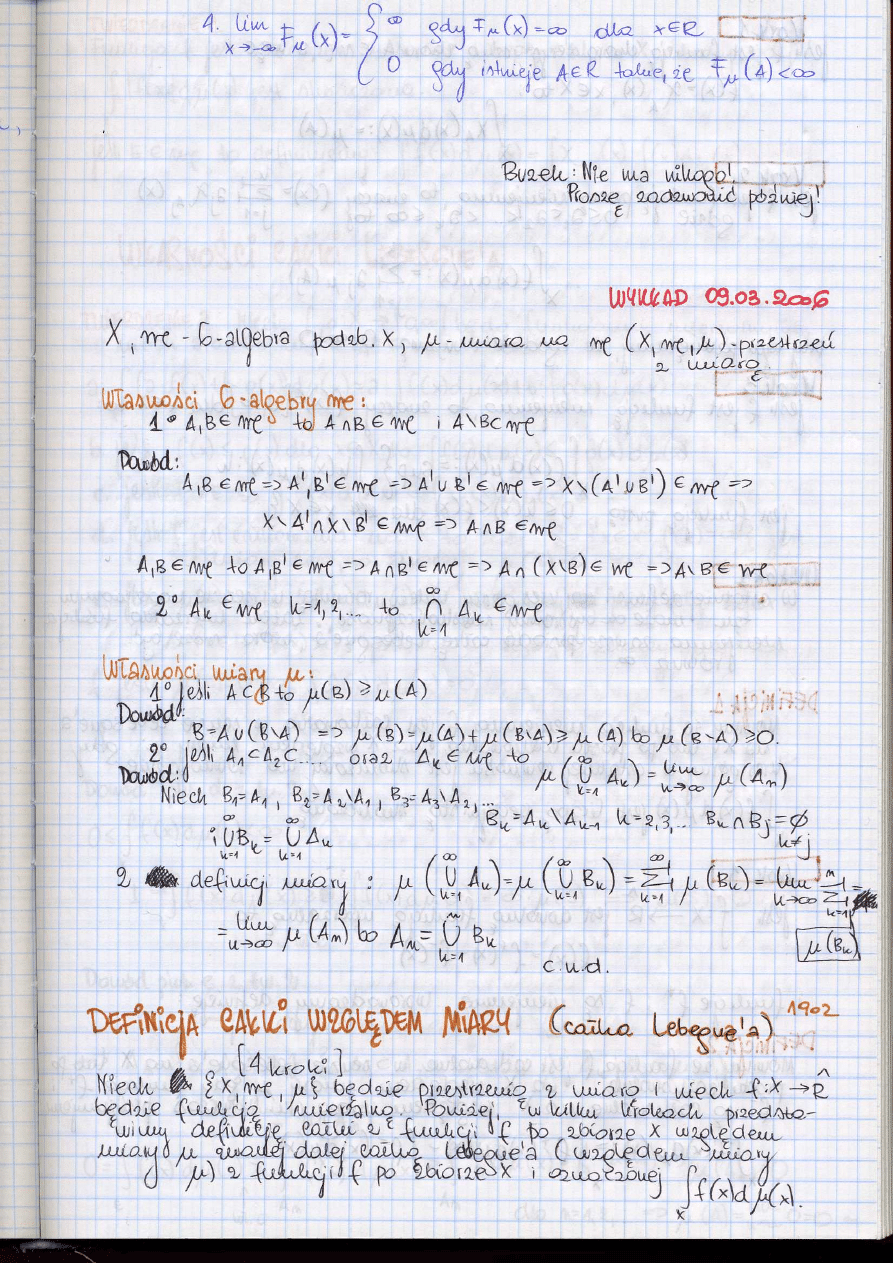 4. lim x→-∞ Fμ(x) = { ∞ gdy Fμ(x)=∞ dla x∈R
0 gdy istnieje A∈R takie, że Fμ(A)<∞
Buzek: Nie ma nikogo!
Proszę zadzwonić później!
WYKŁAD 09.03.2006
X, 𝔐 - σ-algebra podzb. X, μ - miara na 𝔐 (X, 𝔐, μ) - przestrzeń
z miarą
Własności σ-algebry 𝔐:
1° A,B∈𝔐 to A∩B∈𝔐 i A\B⊂𝔐
Dowód:
A,B∈𝔐 => A',B'∈𝔐 => A'∪B'∈𝔐 => X\(A'∪B')∈𝔐 =>
X\A'∩X\B'∈𝔐 => A∩B∈𝔐
A,B∈𝔐 to A,B'∈𝔐 => A∩B'∈𝔐 => A∩(X\B)∈𝔐 => A\B∈𝔐
2° Ak∈𝔐 k=1,2,... to ∞∩k=1 Ak∈𝔐
Własności miary μ:
1° jeśli A⊂B to μ(B)≥μ(A)
Dowód:
B=A∪(B\A) => μ(B)=μ(A)+μ(B\A)≥μ(A) bo μ(B\A)≥0.
2° jeśli A1⊂A2⊂.... oraz Ak∈𝔐 to μ(∞∪k=1 Ak)=lim n→∞ μ(An)
Dowód:
Niech B1=A1, B2=A2\A1, B3=A3\A2,...
Bk=Ak\Ak-1 k=2,3,.. Bk∩Bj=∅ k≠j
i ∞∪k=1 Bk = ∞∪k=1 Ak
z definicji miary: μ(∞∪k=1 Ak)=μ(∞∪k=1 Bk)=∞∑k=1 μ(Bk)=lim n→∞ n∑k=1 μ(Bk)=
=lim n→∞ μ(An) bo An=n∪k=1 Bk
c.n.d.
DEFINICJA CAŁKI WZGLĘDEM MIARY (całka Lebegue'a) 1902
[4 kroki]
Niech {X, 𝔐, μ} będzie przestrzenią z miarą i niech f:X→R̂
będzie funkcją mierzalną. Poniżej, w kilku krokach przedsta-
wimy definicję całki z funkcji f po zbiorze X względem
miary μ zwanej dalej całką Lebegue'a (względem miary
μ) z funkcji f po zbiorze X i oznaczonej ∫X f(x)dμ(x).